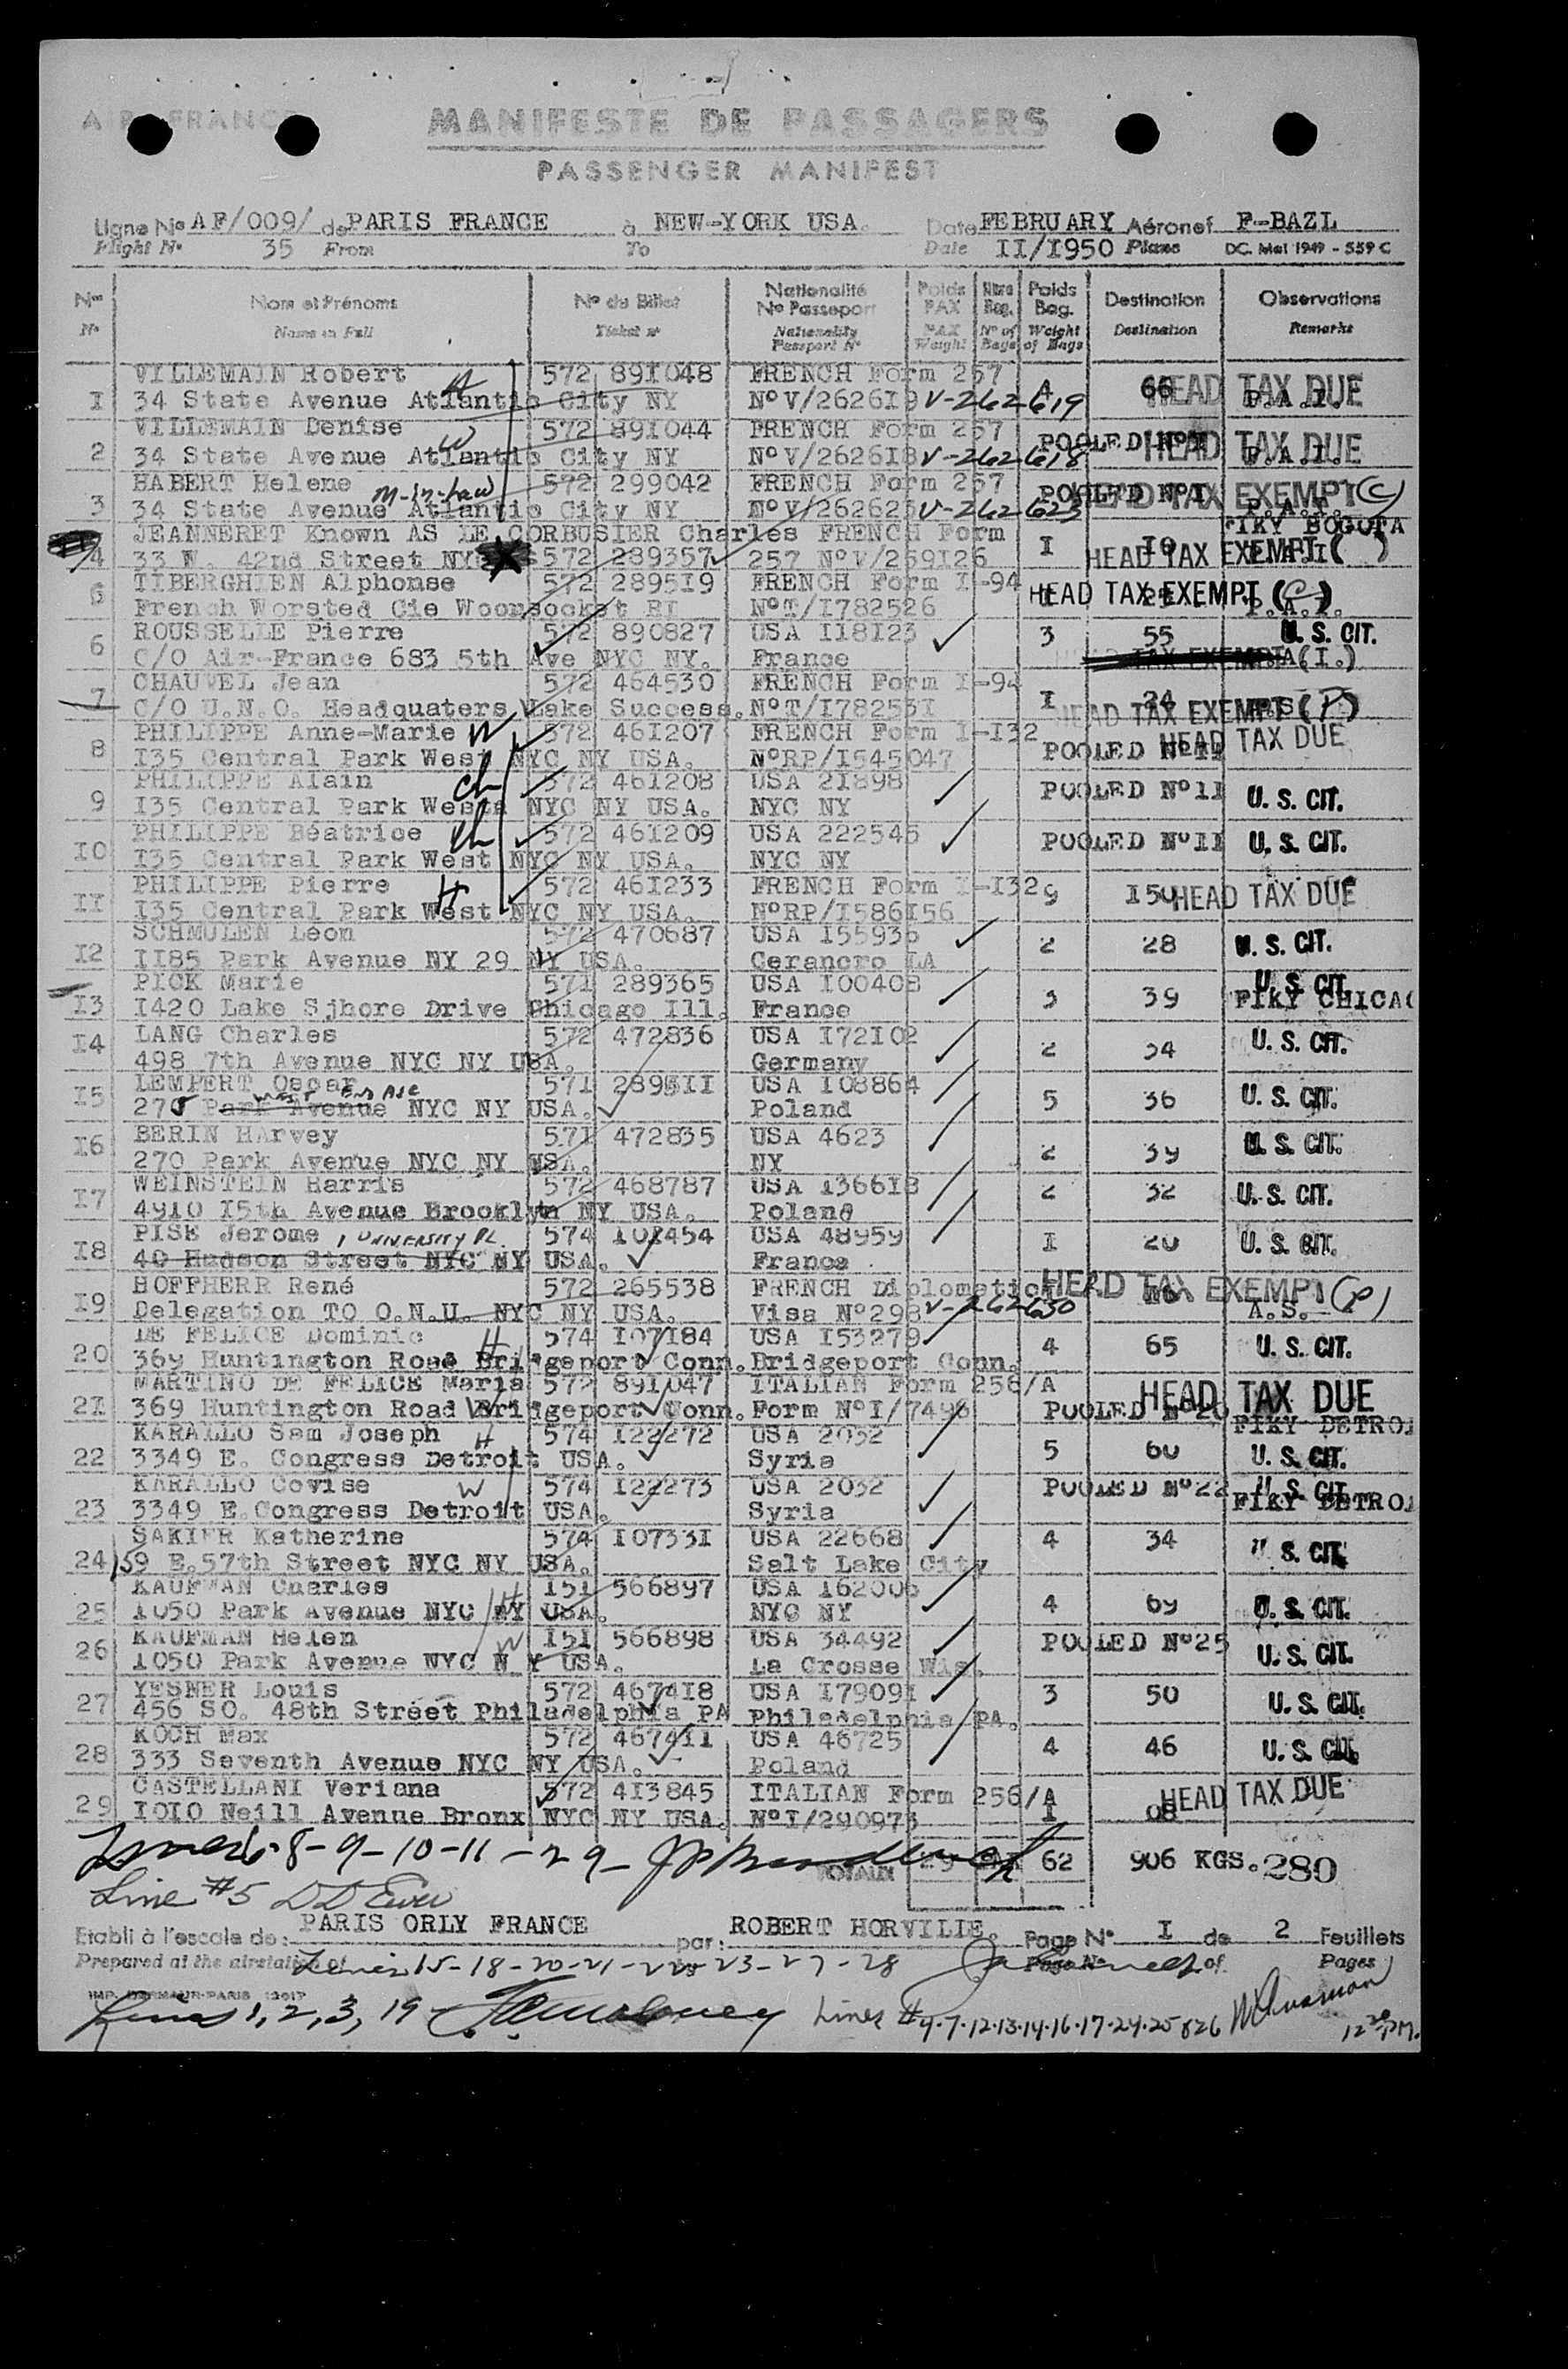 AIR FRANCE
MANIFESTE DE PASSAGERS
PASSENGER MANIFEST
Ligne No AF/009/ de PARIS FRANCE à NEW-YORK USA. Date FEBRUARY Aéronef F-BAZL
Flight No 35 From To Date II/I950 Plane DC. Mai 1949 - 559 C
Nos Nom et Prénoms No du Billet Nationalité No Passeport Poids PAX Nbre Bag. Poids Bag. Destination Observations
No Name in Full Ticket no Nationality Passport No PAX Weight No of Bags Weight of Bags Destination Remarks
VILLEMAIN Robert H 572 89I048 FRENCH Form 257
I 34 State Avenue Atlantic City NY NoV/2626I9 V-262619 4 66 HEAD TAX DUE
VILLEMAIN Denise W 572 89I044 FRENCH Form 257
2 34 State Avenue Atlantic City NY NoV/2626I8 V-262618 POOLED NoI HEAD TAX DUE
HABERT Helene m-in-law 572 299042 FRENCH Form 257
3 34 State Avenue Atlantic City NY NoV/262623 V-262623 POOLED NoI HEAD TAX EXEMPT (C)
JEANNERET Known AS LE CORBUSIER Charles FRENCH Form FIKY BOGOTA
4 33 W. 42nd Street NYC 572 289357 257 NoV/259I26 I I0 HEAD TAX EXEMPT ( )
TIBERGHIEN Alphonse 572 2895I9 FRENCH Form I-94
5 French Worsted Cie Woonsocket RI NoT/I782526 HEAD TAX EXEMPT (C) P.A.I.
ROUSSELLE Pierre 572 890827 USA II8I23 3 55 U. S. CIT.
6 C/O Air-France 683 5th Ave NYC NY. France
CHAUVEL Jean 572 464530 FRENCH Form I-94
7 C/O U.N.O. Headquaters Lake Success. NoT/I78253I I 24 HEAD TAX EXEMPT (P)
PHILIPPE Anne-Marie W 572 46I207 FRENCH Form I-I32
8 I35 Central Park West NYC NY USA. NoRP/I545047 POOLED NoII HEAD TAX DUE
PHILIPPE Alain ch 572 46I208 USA 2I898
9 I35 Central Park Wests NYC NY USA. NYC NY POOLED NoII U. S. CIT.
PHILIPPE Béatrice ch 572 46I209 USA 222545
I0 I35 Central Park West NYC NY USA. NYC NY POOLED NoII U. S. CIT.
PHILIPPE Pierre H 572 46I233 FRENCH Form I-I32
II I35 Central Park West NYC NY USA. NoRP/I586I56 9 I50 HEAD TAX DUE
SCHMULEN Léon 572 470687 USA I55936
I2 II85 Park Avenue NY 29 NY USA. Cerancro LA 2 28 U. S. CIT.
PICK Marie 57I 289365 USA I00408 U. S. CIT.
I3 I420 Lake Sjhore Drive Chicago Ill. France 3 39 FIKY CHICAG
LANG Charles 572 472836 USA I72I02
I4 498 7th Avenue NYC NY USA. Germany 2 34 U. S. CIT.
LEMPERT Oscar WEST END AVE 57I 2895II USA I08864
I5 270 Park Avenue NYC NY USA. Poland 5 36 U. S. CIT.
BERIN HArvey 57I 472835 USA 4623
I6 270 Park Avenue NYC NY USA. NY 2 39 U. S. CIT.
WEINSTEIN Harris 572 468787 USA I366I8
I7 49I0 I5th Avenue Brooklyn NY USA. Poland 2 32 U. S. CIT.
PISE Jerome 1 UNIVERSITY PL. 574 I0I454 USA 48959
I8 40 Hudson Street NYC NY USA. France I 20 U. S. CIT.
HOFFHERR René 572 265538 FRENCH Diplomatic HEAD TAX EXEMPT (P)
I9 Delegation TO O.N.U. NYC NY USA. Visa No298 V-262630 A.S.
DE FELICE Dominic H 574 I07I84 USA I53279
20 369 Huntington Road Bridgeport Conn. Bridgeport Conn. 4 65 U. S. CIT.
MARTINO DE FELICE Maria 572 89I047 ITALIAN Form 256/A
2I 369 Huntington Road W Bridgeport Conn. Form NoI/7496 POOLED No20 HEAD TAX DUE
KARALLO Sam Joseph H 574 I22272 USA 2032 FIKY DETROI
22 3349 E. Congress Detroit USA. Syria 5 60 U. S. CIT.
KARALLO Covise W 574 I22273 USA 2032 POOLED No22 U. S. CIT.
23 3349 E.Congress Detroit USA. Syria FIKY DETROI
SAKIER Katherine 574 I0733I USA 22668
24 159 E.57th Street NYC NY USA. Salt Lake City 4 34 U. S. CIT.
KAUFMAN Charles H I5I 566897 USA I62006
25 I050 Park Avenue NYC NY USA. NYC NY 4 69 U. S. CIT.
KAUFMAN Helen W I5I 566898 USA 34492 POOLED No25
26 I050 Park Avenue NYC N Y USA. La Crosse Wis. U. S. CIT.
YESNER Louis 572 4674I8 USA I7909I
27 456 SO. 48th Street Philadelphia PA Philadelphia PA. 3 50 U. S. CIT.
KOCH Max 572 4674II USA 46725
28 333 Seventh Avenue NYC NY USA. Poland 4 46 U. S. CIT.
CASTELLANI Veriana 572 4I3845 ITALIAN Form 256/A
29 I0I0 Neill Avenue Bronx NYC NY USA. NoI/290973 I 08 HEAD TAX DUE
Lines 6-8-9-10-11-29-
TOTAUX 29 62 906 KGS. 280
Line #5
Etabli à l'escale de: PARIS ORLY FRANCE par: ROBERT HORVILLE. Page No I de 2 Feuillets
Prepared at the airstation of Lines 15-18-20-21-22-23-27-28 Page No of Pages
Lines 1, 2, 3, 19 Lines # 4-7-12-13-14-16-17-24-25 & 26
12 20 PM.